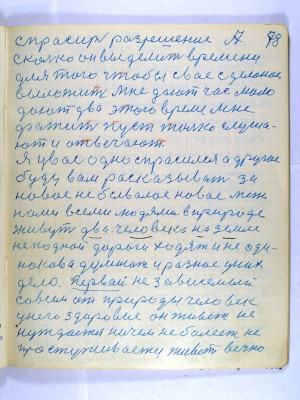 спрасир разрешение А 78
сколко он выделит времени
для того чтобы свае сделоное
выложить мне дают час мало
дают два этого време мне
хватит пуст толко слуша-
ют и отвечают
Я у вас одно спрасился а другое
буду вам расказыват за
новое небывалое новае меж
нами всеми людями в природе
живут два человека на земле
не подной дороги ходят и не оди-
нокова думают и разное у них
дело. первай не зависемый
совсем от природы человек
у него здоровие он живет не
нуждается ничем не болеет не
простуживаеть живет вечно